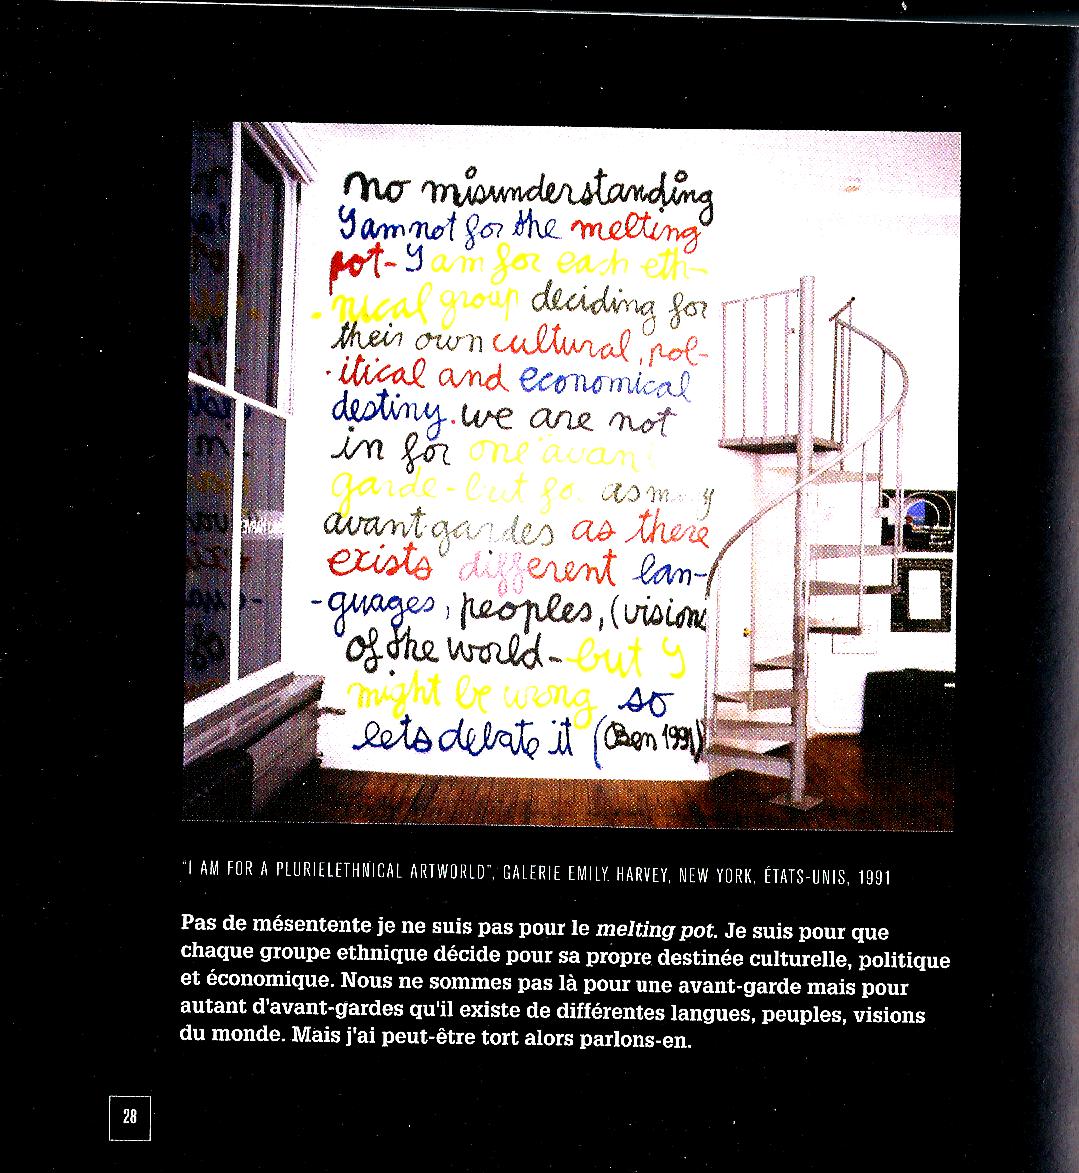 no misunderstanding
I am not for the melting
pot - I am for each eth-
- nical group deciding for
their own cultural, pol-
- itical and economical
destiny. we are not
in for one avan
garde - but fo as m y
avant gardes as there
exists different lan-
- guages, peoples, (vision
of the world - but I
might be wrong so
lets debate it (Ben 1991)
"I AM FOR A PLURIELETHNICAL ARTWORLD", GALERIE EMILY HARVEY, NEW YORK, ÉTATS-UNIS, 1991
Pas de mésentente je ne suis pas pour le melting pot. Je suis pour que
chaque groupe ethnique décide pour sa propre destinée culturelle, politique
et économique. Nous ne sommes pas là pour une avant-garde mais pour
autant d'avant-gardes qu'il existe de différentes langues, peuples, visions
du monde. Mais j'ai peut-être tort alors parlons-en.
28